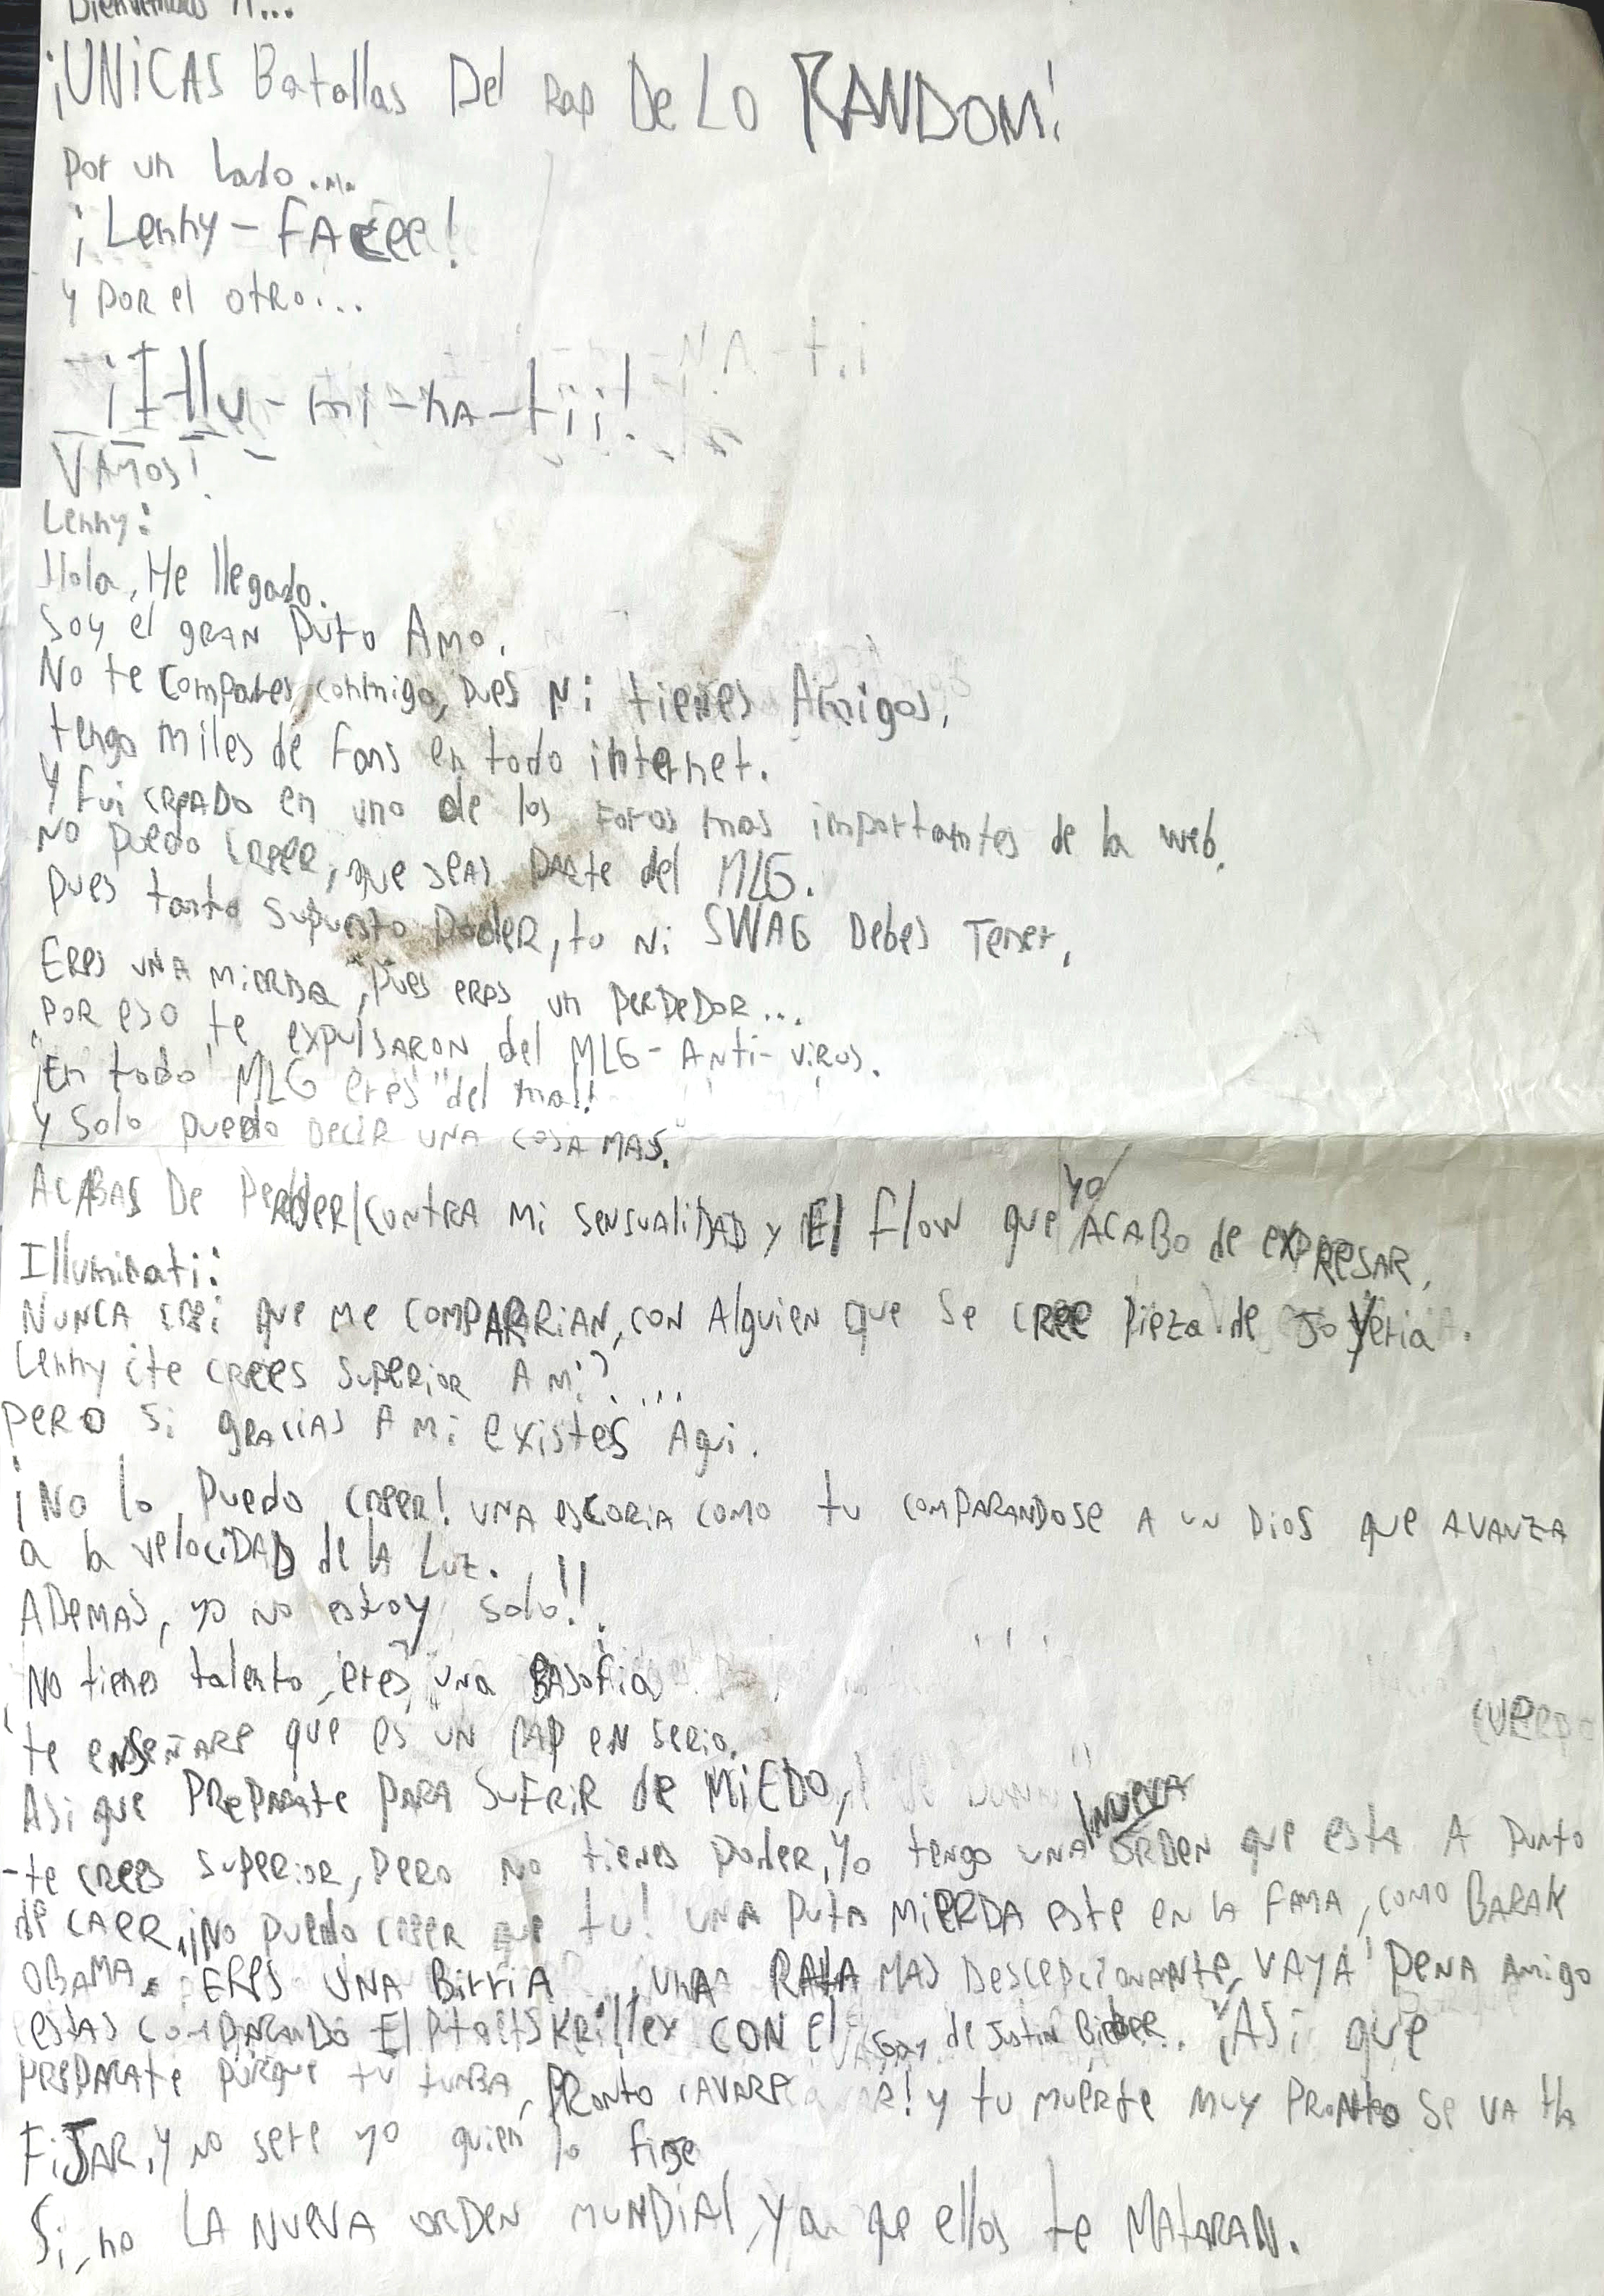 Bienvenidos A...
¡UNiCAS Batallas Del Rap De Lo RANDOM!
Por un lado...
¡Lenny - FACEee!
y por el otro...
¡I-llu-mi-nA-tii!
NA-ti
VAMOS!
Lenny:
Hola, He llegado.
Soy el gRAN Puto Amo.
No te Compares conmigo, pues Ni tienes Amigos.
tengo miles de Fans en todo internet.
Y Fui CReADo en uno de los Foros mas importantes de la web.
No puedo CReeR, que seas PARte del MLG.
Pues tanto supuesto PodeR, tu Ni SWAG Debes Tener.
ERes UNA MieRDa, Pues eRes un PeRDeDoR...
PoR eso te expulsARON del MLG-Anti-viRus.
¡En todo MLG eres "del mal!
Y Solo puedo DeciR UNA COSA MAS.
ACABAS De PeRdeR/CONtRA Mi SeNSUAliDAD y El flow que yo ACABo de exPResAR.
Illuminati:
NUNCA CRei que Me COMPARARiAN, CON Alguien que Se CRee Pieza de JoYeria.
Lenny ¿te CRees SuPeRioR A Mi?...
PeRO Si gRACiAS A Mi existes Aqui.
¡No lo Puedo CReeR! UNA esCORiA COMO tu COMPARANDOSe A UN DiOS que AVANZA
a la velociDAD de lA Luz.
ADeMAS, yo No estoy solo!!.
No tienes talento, eres una BASofia
CUeRpo
te eNSeÑARe que es UN RAP eN SeRio.
Asi que PRePARAte PARA SufRiR de MiEDO,
-te CRees SuPeRioR, peRo No tienes PodeR, Yo tengo UNA NUeVA ORDeN que estA A punto
de CAeR, ¡¡No puedo CReeR que tu! UNA Puta MieRDA este eN lA FAMA, COMO BARAK
OBAMA. ERes UNA BirriA, UNA RAtA MAS DesCePCioNANte, VAYA PeNA Amigo
estas COMPARANDO El Skrillex CON el gay de Justin Bieber. ¡ASi que
PRePARAte PoRque tu tumBA, PRonto CAVARe! y tu mueRte MUY PRoNto Se VA HA
FiJAR, Y no sere yo quien lo fije
Si no LA NUeVA oRDeN MUNDiAl, Ya que ellos te MATARAN.